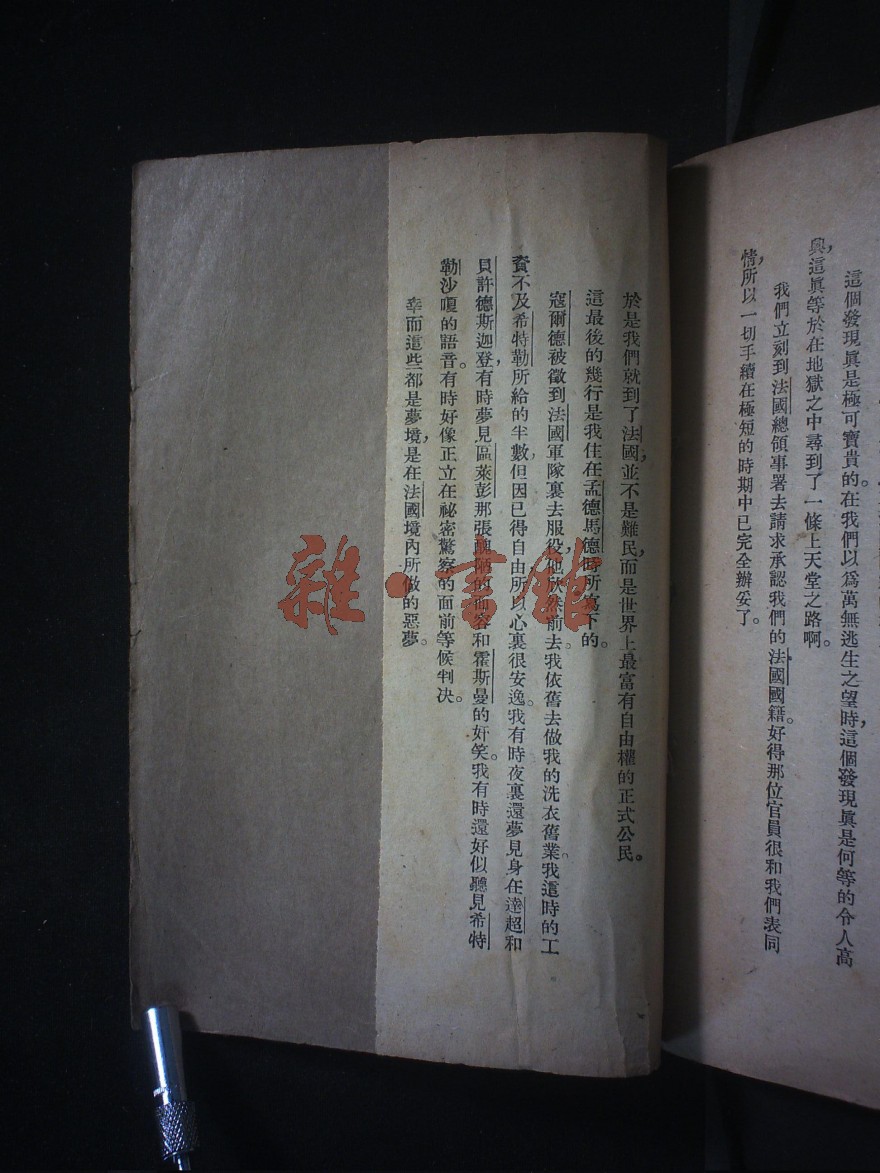 這個發現眞是極可寶貴的。在我們以爲萬無逃生之望時，這個發現眞是何等的令人高
興，這眞等於在地獄之中尋到了一條上天堂之路啊。
我們立刻到法國總領事署去請求承認我們的法國國籍。好得那位官員很和我們表同
情，所以一切手續在極短的時期中已完全辦妥了。
於是我們就到了法國，並不是難民，而是世界上最富有自由權的正式公民。
這最後的幾行是我住在孟德馬德時所寫下的。
寇爾德被徵到法國軍隊裏去服役，他欣然前去。我依舊去做我的洗衣舊業。我這時的工
資不及希特勒所給的半數，但因已得自由所以心裏很安逸。我有時夜裏還夢見身在達超和
貝許德斯迦登，有時夢見區萊彭那張醜陋的面容和霍斯曼的奸笑。我有時還好似聽見希特
勒沙嗄的語音。有時好像正立在祕密警察的面前等候判決。
幸而這些都是夢境，是在法國境內所做的惡夢。
雜·書館